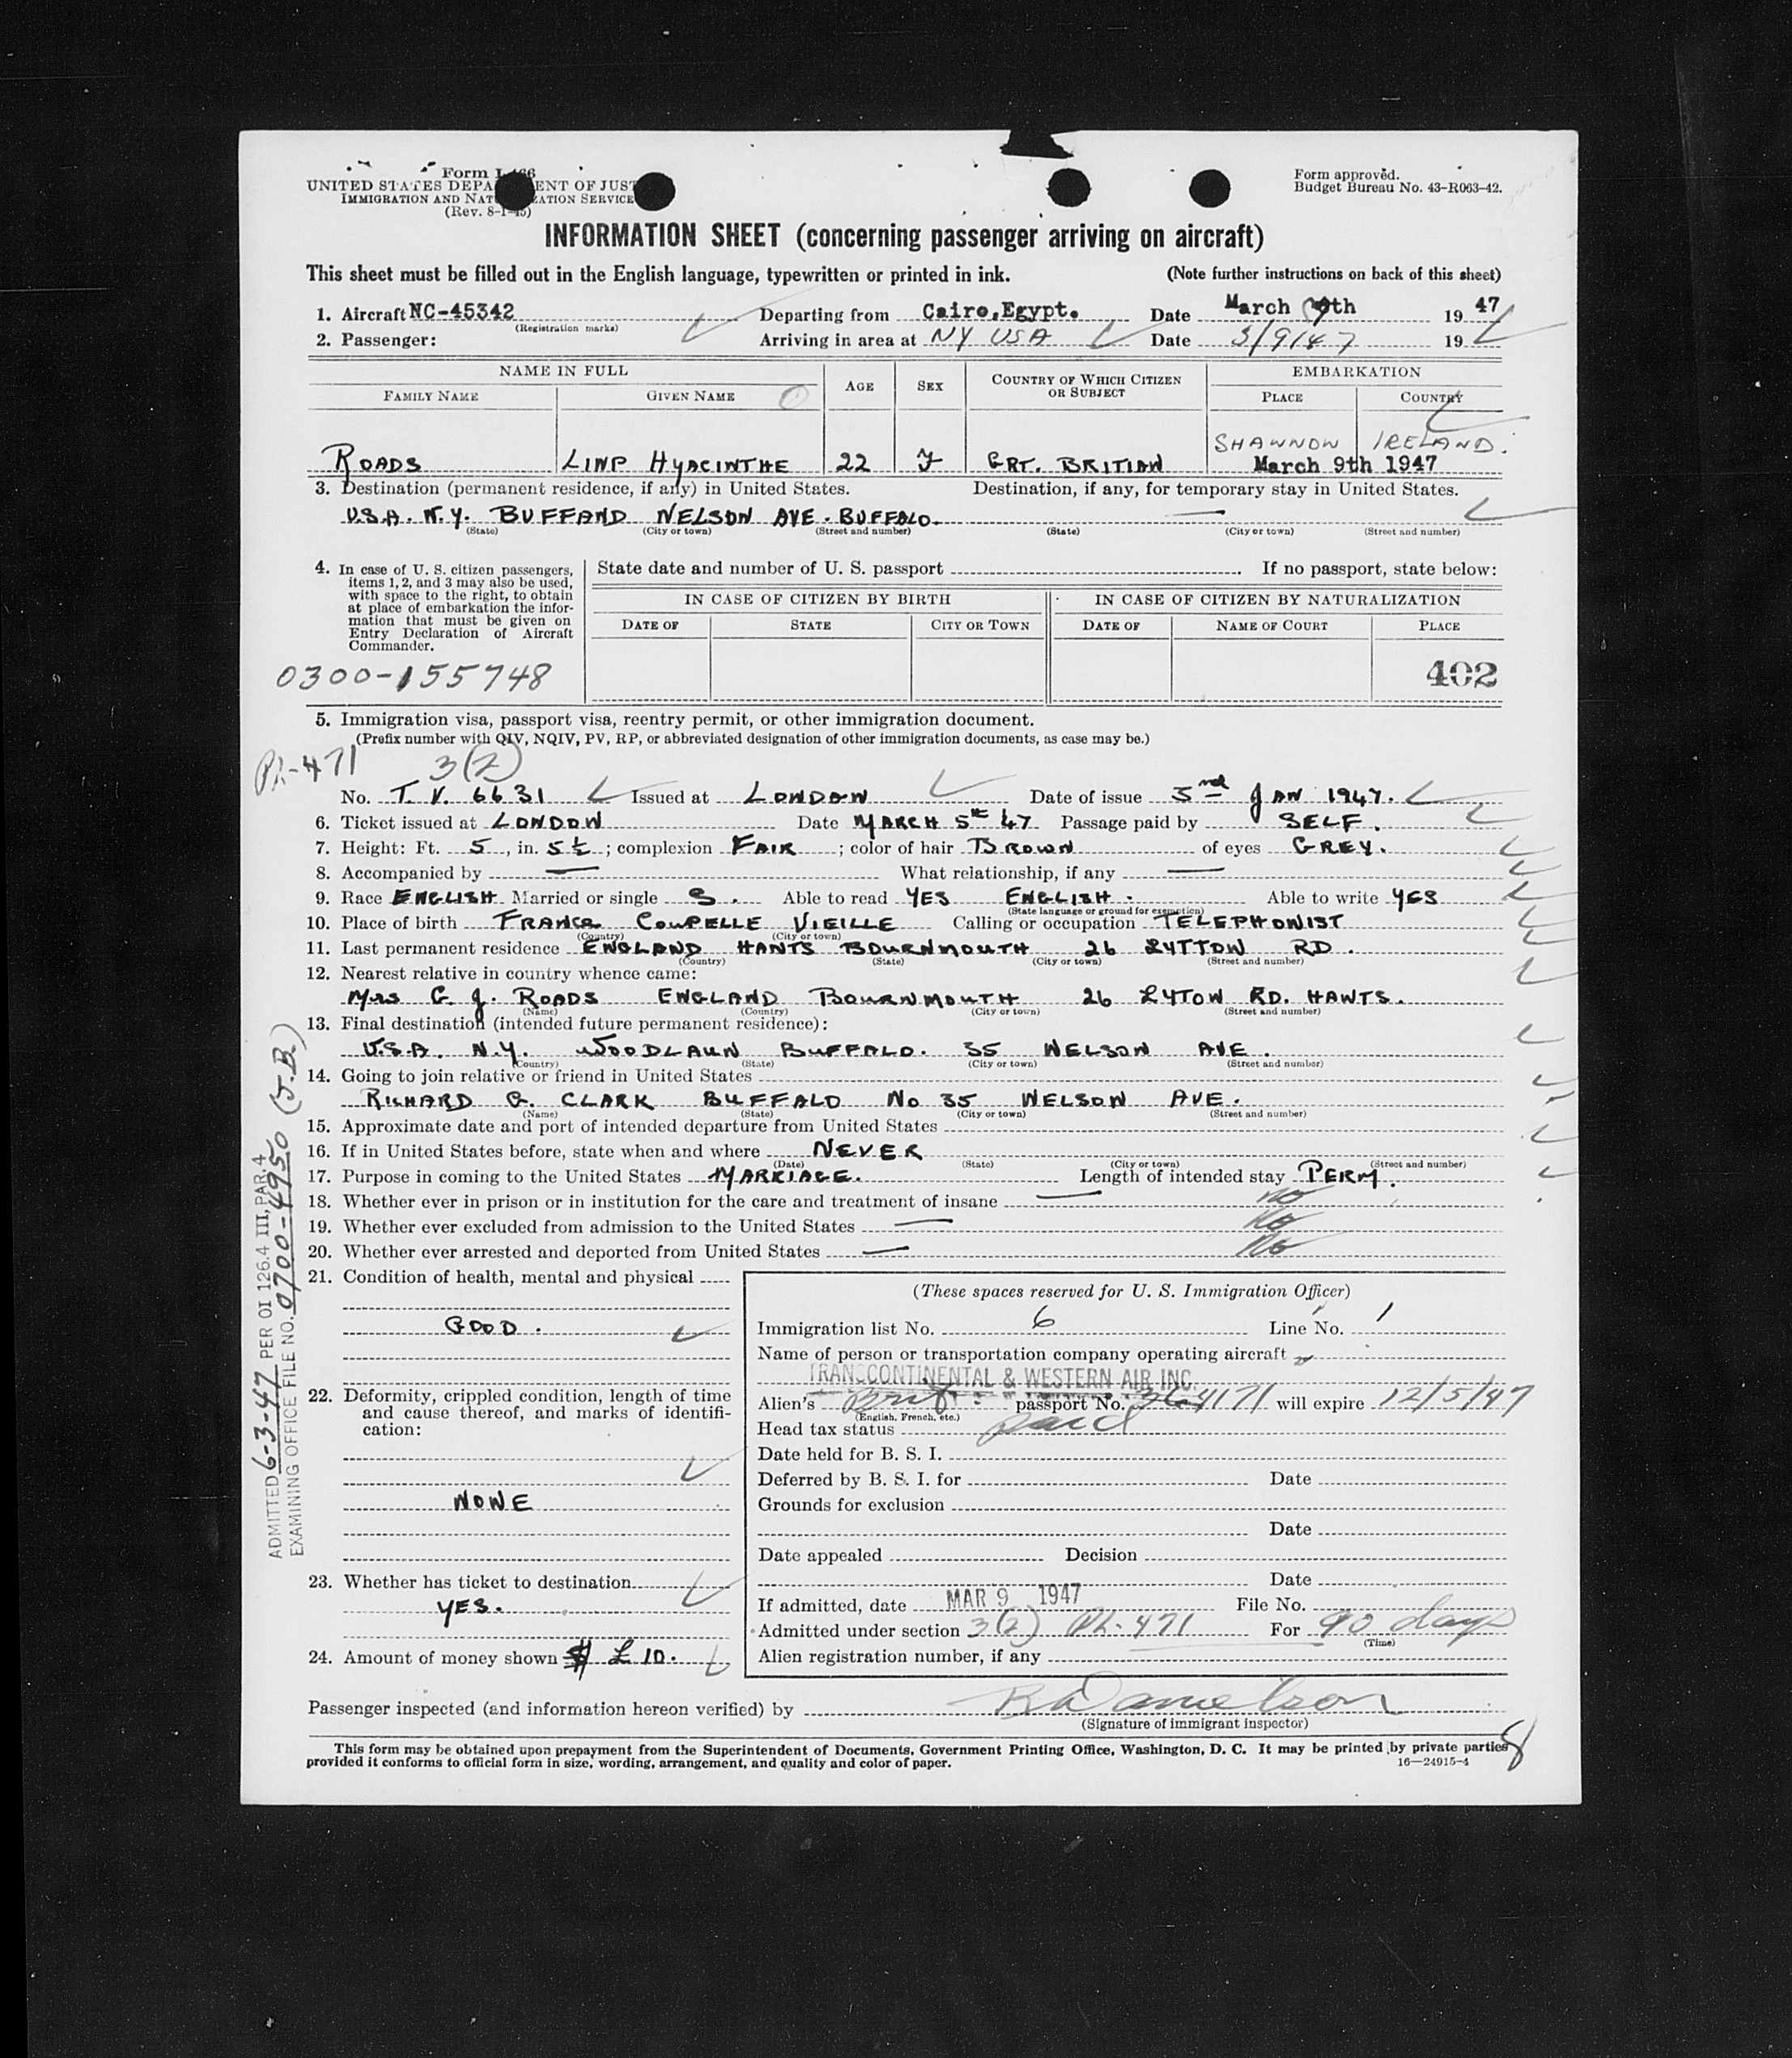 Form I-466
UNITED STATES DEPARTMENT OF JUSTICE
IMMIGRATION AND NATURALIZATION SERVICE
(Rev. 8-1-45)
Form approved.
Budget Bureau No. 43-R063-42.
INFORMATION SHEET (concerning passenger arriving on aircraft)
This sheet must be filled out in the English language, typewritten or printed in ink. (Note further instructions on back of this sheet)
1. Aircraft NC-45342 Departing from Cairo,Egypt. Date March 9th 19 47
(Registration marks)
2. Passenger: Arriving in area at NY USA Date 3/9/47 19
NAME IN FULL AGE SEX COUNTRY OF WHICH CITIZEN OR SUBJECT EMBARKATION
FAMILY NAME GIVEN NAME PLACE COUNTRY
SHANNON IRELAND.
ROADS HYACINTHE 22 F GRT. BRITIAN March 9th 1947
3. Destination (permanent residence, if any) in United States. Destination, if any, for temporary stay in United States.
U.S.A. N.Y. BUFFAND NELSON AVE. BUFFALO. —
(State) (City or town) (Street and number) (State) (City or town) (Street and number)
4. In case of U. S. citizen passengers, items 1, 2, and 3 may also be used, with space to the right, to obtain at place of embarkation the information that must be given on Entry Declaration of Aircraft Commander.
State date and number of U. S. passport If no passport, state below:
IN CASE OF CITIZEN BY BIRTH IN CASE OF CITIZEN BY NATURALIZATION
DATE OF STATE CITY OR TOWN DATE OF NAME OF COURT PLACE
0300-155748 402
5. Immigration visa, passport visa, reentry permit, or other immigration document.
(Prefix number with QIV, NQIV, PV, RP, or abbreviated designation of other immigration documents, as case may be.)
PL-471 3(2)
No. T. V. 6631 Issued at LONDON Date of issue 3rd JAN 1947.
6. Ticket issued at LONDON Date MARCH 5th 47 Passage paid by SELF.
7. Height: Ft. 5, in. 5½; complexion FAIR; color of hair BROWN of eyes GREY.
8. Accompanied by — What relationship, if any —
9. Race ENGLISH Married or single S. Able to read YES ENGLISH. Able to write YES
(State language or ground for exemption)
10. Place of birth FRANCE COUPELLE VIEILLE Calling or occupation TELEPHONIST
(Country) (City or town)
11. Last permanent residence ENGLAND HANTS BOURNMOUTH 26 LYTTON RD.
(Country) (State) (City or town) (Street and number)
12. Nearest relative in country whence came:
Mrs G. J. ROADS ENGLAND BOURNMOUTH 26 LYTON RD. HANTS.
(Name) (Country) (City or town) (Street and number)
13. Final destination (intended future permanent residence):
U.S.A. N.Y. WOODLAUN BUFFALO. 35 NELSON AVE.
(Country) (State) (City or town) (Street and number)
14. Going to join relative or friend in United States
RICHARD G. CLARK BUFFALO No 35 NELSON AVE.
(Name) (State) (City or town) (Street and number)
15. Approximate date and port of intended departure from United States
16. If in United States before, state when and where NEVER
(Date) (State) (City or town) (Street and number)
17. Purpose in coming to the United States MARRIAGE. Length of intended stay PERM.
18. Whether ever in prison or in institution for the care and treatment of insane — no
19. Whether ever excluded from admission to the United States — No
20. Whether ever arrested and deported from United States — No
21. Condition of health, mental and physical
GOOD.
22. Deformity, crippled condition, length of time and cause thereof, and marks of identification:
NONE
23. Whether has ticket to destination
YES.
24. Amount of money shown $ £ 10.
(These spaces reserved for U. S. Immigration Officer)
Immigration list No. 6 Line No. 1
Name of person or transportation company operating aircraft
TRANSCONTINENTAL & WESTERN AIR INC.
Alien's Brit. passport No. 364171 will expire 12/5/47
(English, French, etc.)
Head tax status paid
Date held for B. S. I.
Deferred by B. S. I. for Date
Grounds for exclusion
Date
Date appealed Decision
Date
If admitted, date MAR 9 1947 File No.
Admitted under section 3(2) PL-471 For 90 days
(Time)
Alien registration number, if any
Passenger inspected (and information hereon verified) by
(Signature of immigrant inspector)
This form may be obtained upon prepayment from the Superintendent of Documents, Government Printing Office, Washington, D. C. It may be printed by private parties
provided it conforms to official form in size, wording, arrangement, and quality and color of paper. 16—24915-4
8
ADMITTED 6-3-47 PER OI 126.4 III, PAR. 4
EXAMINING OFFICE FILE NO. 0700-4950 (J.B.)